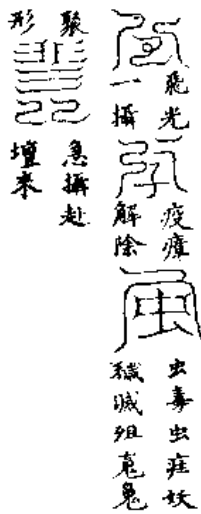 飛光
一攝
疫瘴
解除
虫毒虫疰妖
穢滅殂
聚
形
急攝赴
壇來